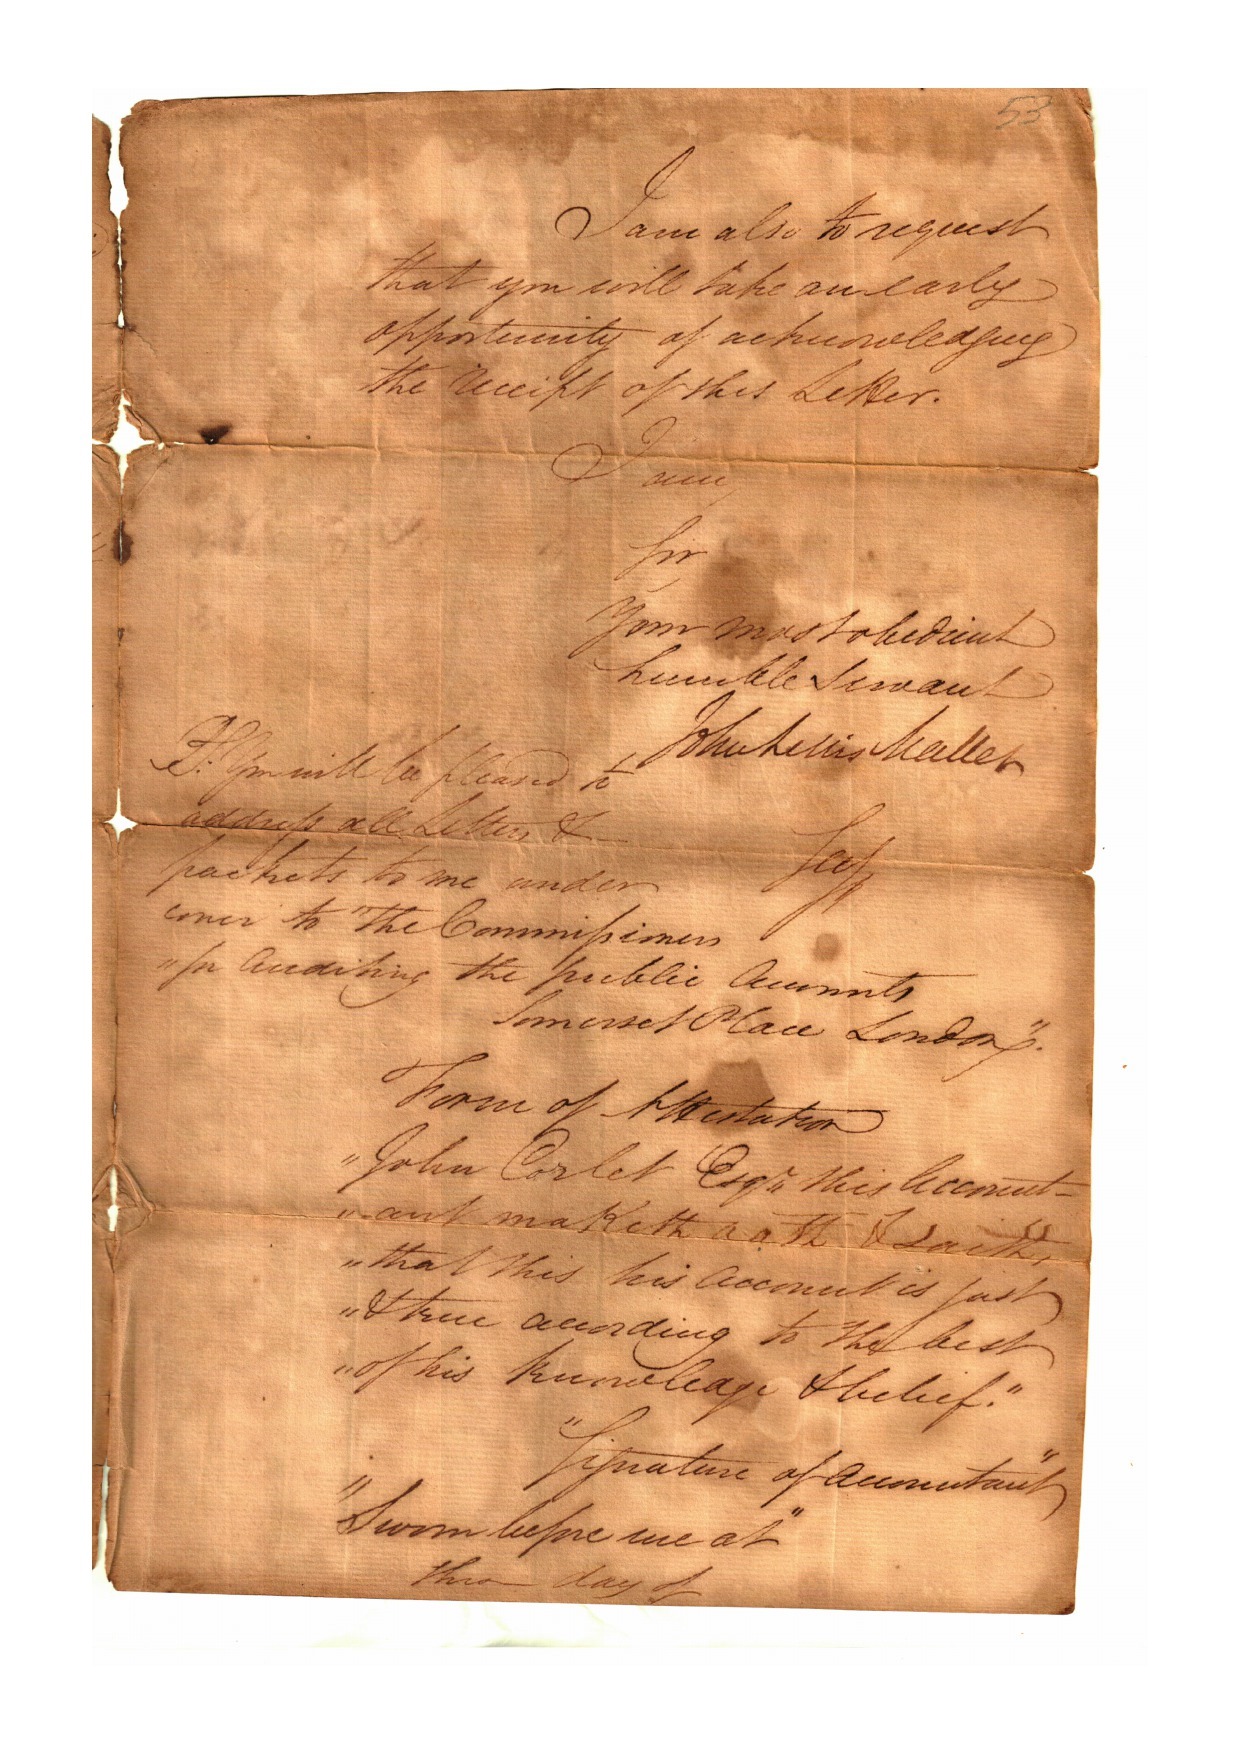 53
I am also to request
that you will take an early
opportunity of acknowledging
the receipt of this Letter.
I am
Sir
Your most obedient
humble Servant
John Lewis Mallet
Secy
P.S. You will be pleased to
address all Letters &
packets to me under
cover to "The Commissioners
"for Auditing the public Accounts
Somerset Place London".
Form of Attestation
"John Corlet Esqr. this Account-
"ant maketh oath & saith,
"that this his Account is just
"& true according to the best
"of his knowledge & belief."
"Signature of Accountant"
"Sworn before me at"
this day of